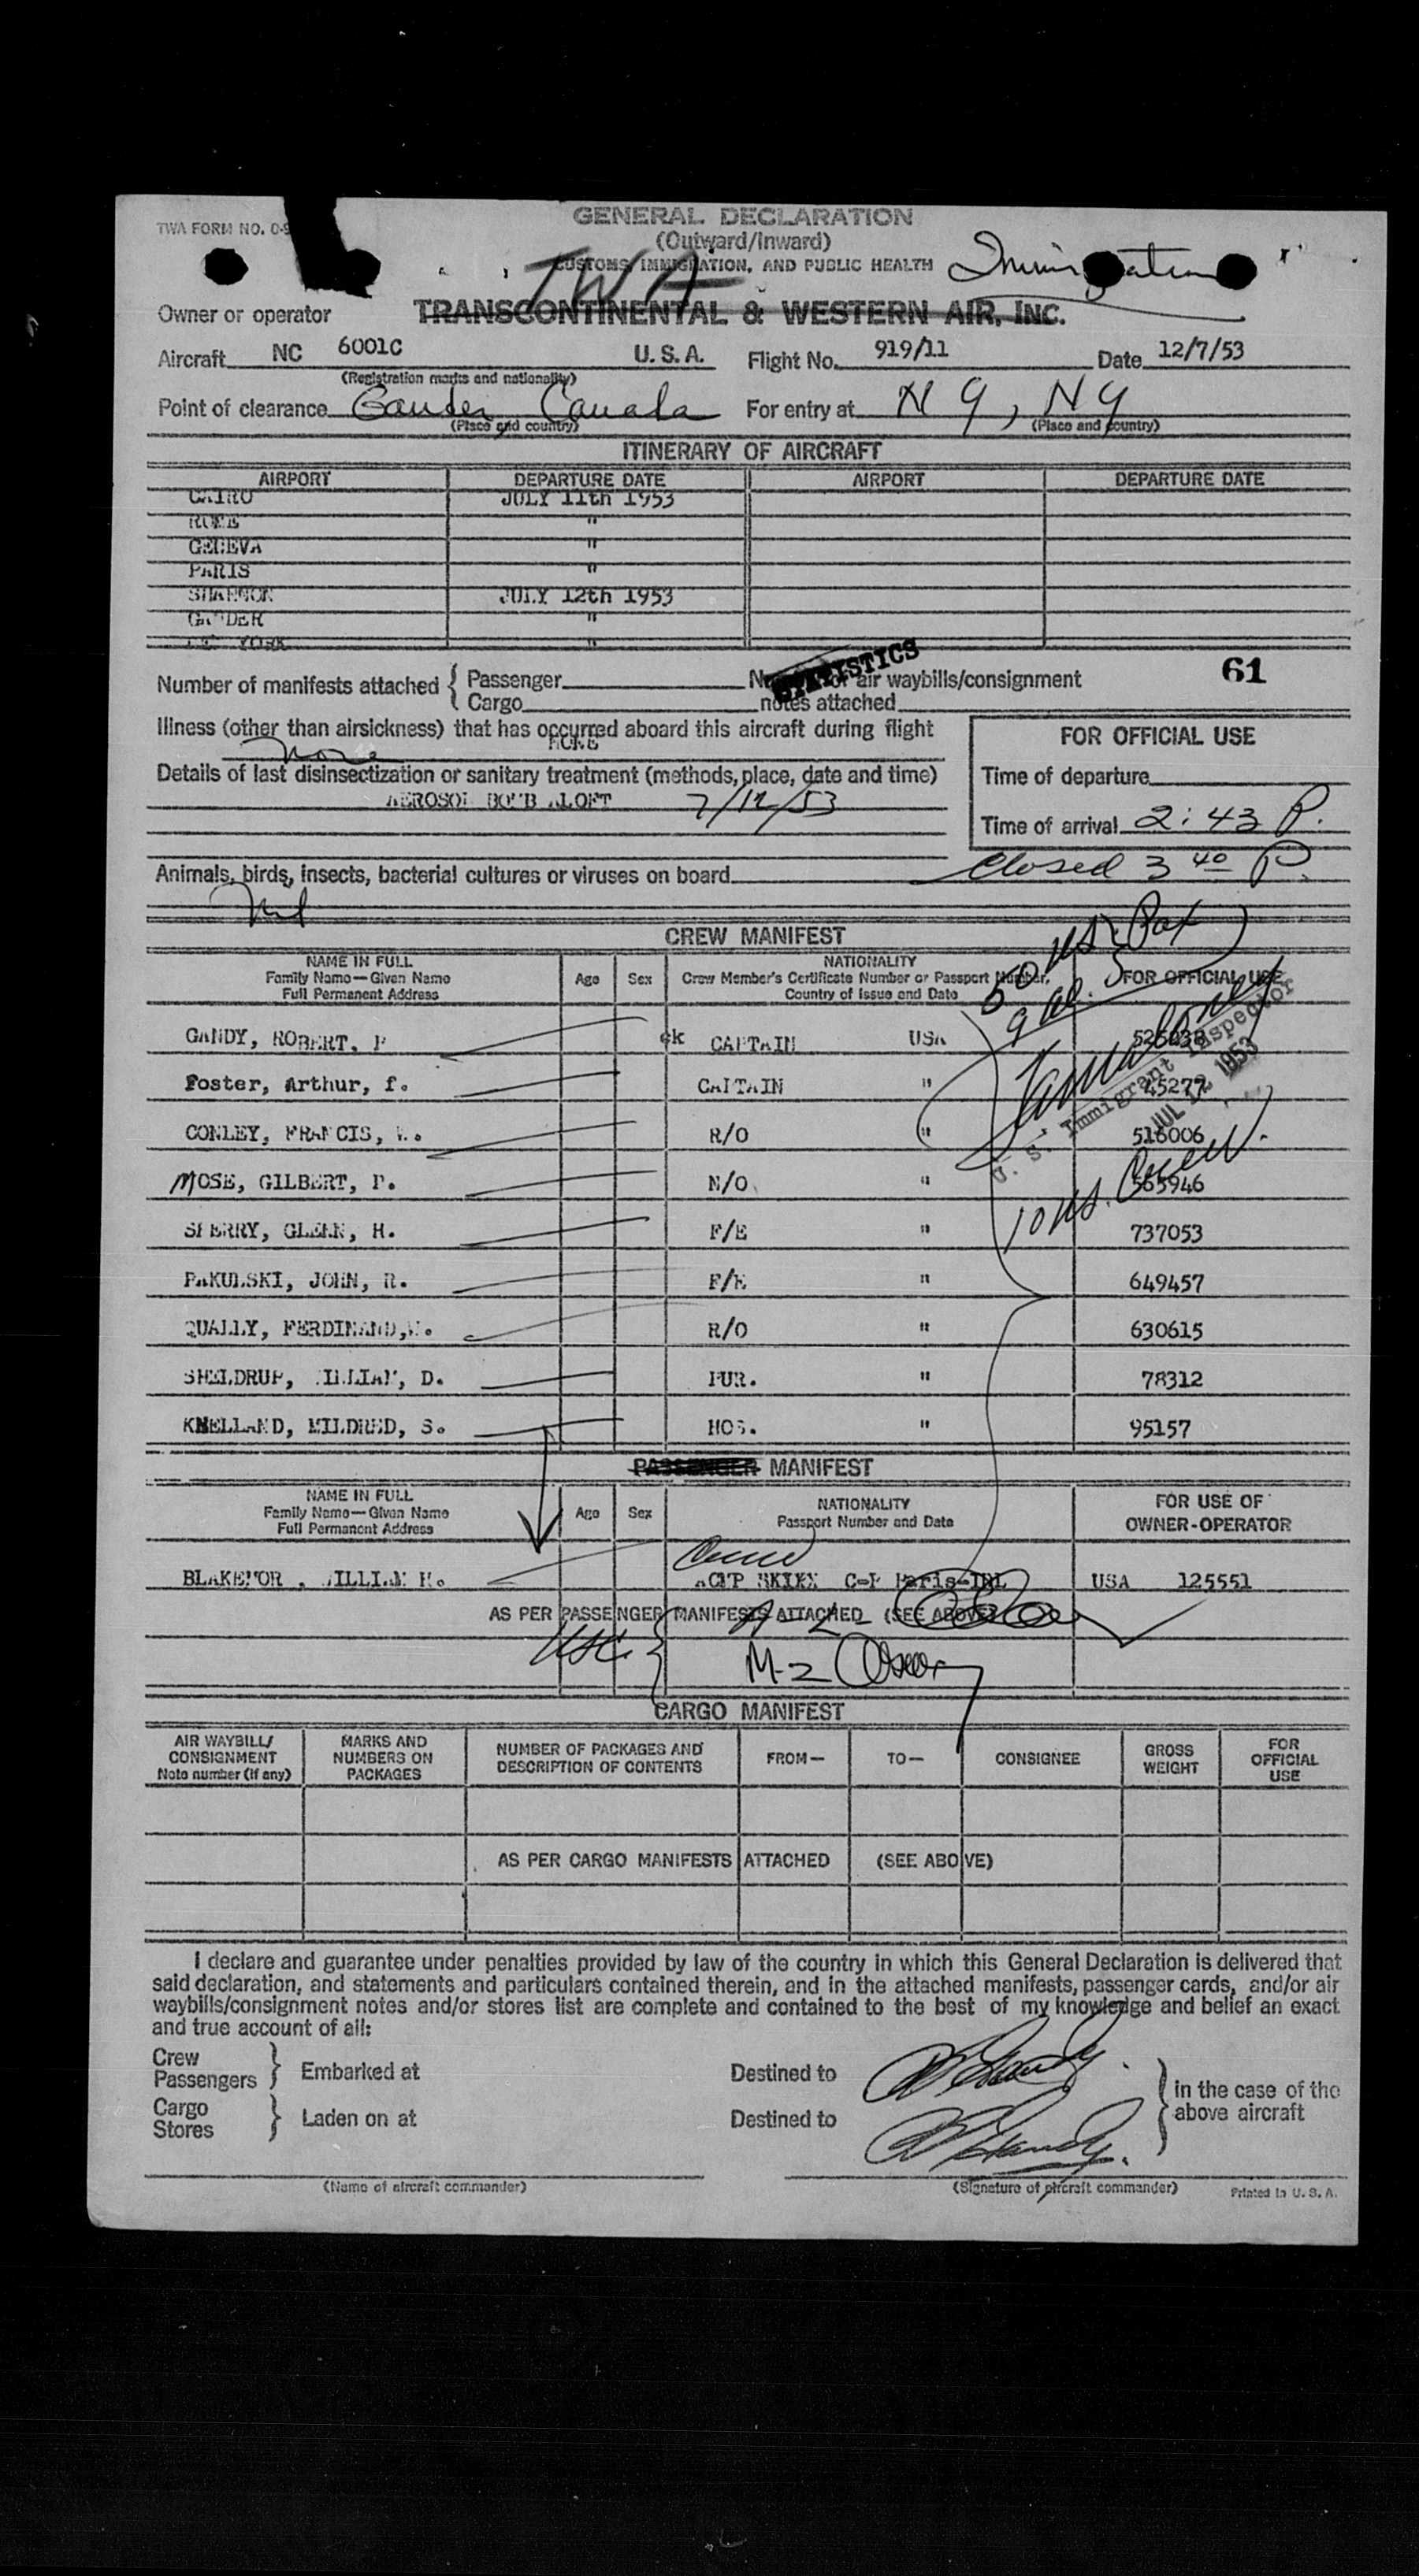 TWA FORM NO. 0-9
GENERAL DECLARATION
(Outward/Inward)
CUSTOMS, IMMIGRATION, AND PUBLIC HEALTH
Immigration
TWA
Owner or operator TRANSCONTINENTAL & WESTERN AIR, INC.
Aircraft NC 6001C U. S. A. Flight No. 919/11 Date 12/7/53
(Registration marks and nationality)
Point of clearance Gander, Canada For entry at N Y, NY
(Place and country) (Place and country)
ITINERARY OF AIRCRAFT
AIRPORT DEPARTURE DATE AIRPORT DEPARTURE DATE
CAIRO JULY 11th 1953
ROME "
GENEVA "
PARIS "
SHANNON JULY 12th 1953
GANDER "
NEW YORK "
STATISTICS
61
Number of manifests attached { Passenger Number of air waybills/consignment
Cargo notes attached
Illness (other than airsickness) that has occurred aboard this aircraft during flight
NONE
None
FOR OFFICIAL USE
Details of last disinsectization or sanitary treatment (methods, place, date and time)
AEROSOL BOMB ALOFT 7/12/53
Time of departure
Time of arrival 2:43 P.
Closed 3 40 P.
Animals, birds, insects, bacterial cultures or viruses on board
Nil
CREW MANIFEST
NAME IN FULL
Family Name—Given Name
Full Permanent Address
Age Sex
NATIONALITY
Crew Member's Certificate Number or Passport Number,
Country of Issue and Date
FOR OFFICIAL USE
50 US. Pax
9 al.
U. S. Immigrant Inspector
JUL 12 1953
10 US. Crew.
GANDY, ROBERT, P ck CAPTAIN USA 525038
Foster, Arthur, f. CAPTAIN " 45277
CONLEY, FRANCIS, W. R/O " 516006
MOSE, GILBERT, P. N/O " 565946
SPERRY, GLENN, H. F/E " 737053
PAKULSKI, JOHN, R. F/E " 649457
QUALLY, FERDINAND, R/O " 630615
SHELDRUP, WILLIAM, D. PUR. " 78312
KNELLAND, MILDRED, S. HOS. " 95157
PASSENGER MANIFEST
NAME IN FULL
Family Name—Given Name
Full Permanent Address
Age Sex
NATIONALITY
Passport Number and Date
FOR USE OF
OWNER-OPERATOR
BLAKEMOR , WILLIAM H. ACMP C-P Paris-IDL USA 125551
AS PER PASSENGER MANIFESTS ATTACHED (SEE ABOVE)
USC.
M-2
CARGO MANIFEST
AIR WAYBILL/
CONSIGNMENT
Note number (if any)
MARKS AND
NUMBERS ON
PACKAGES
NUMBER OF PACKAGES AND
DESCRIPTION OF CONTENTS
FROM— TO— CONSIGNEE
GROSS
WEIGHT
FOR
OFFICIAL
USE
AS PER CARGO MANIFESTS ATTACHED (SEE ABOVE)
I declare and guarantee under penalties provided by law of the country in which this General Declaration is delivered that
said declaration, and statements and particulars contained therein, and in the attached manifests, passenger cards, and/or air
waybills/consignment notes and/or stores list are complete and contained to the best of my knowledge and belief an exact
and true account of all:
Crew
Passengers } Embarked at Destined to
Cargo
Stores } Laden on at Destined to
} in the case of the
above aircraft
(Name of aircraft commander) (Signature of aircraft commander) Printed in U. S. A.